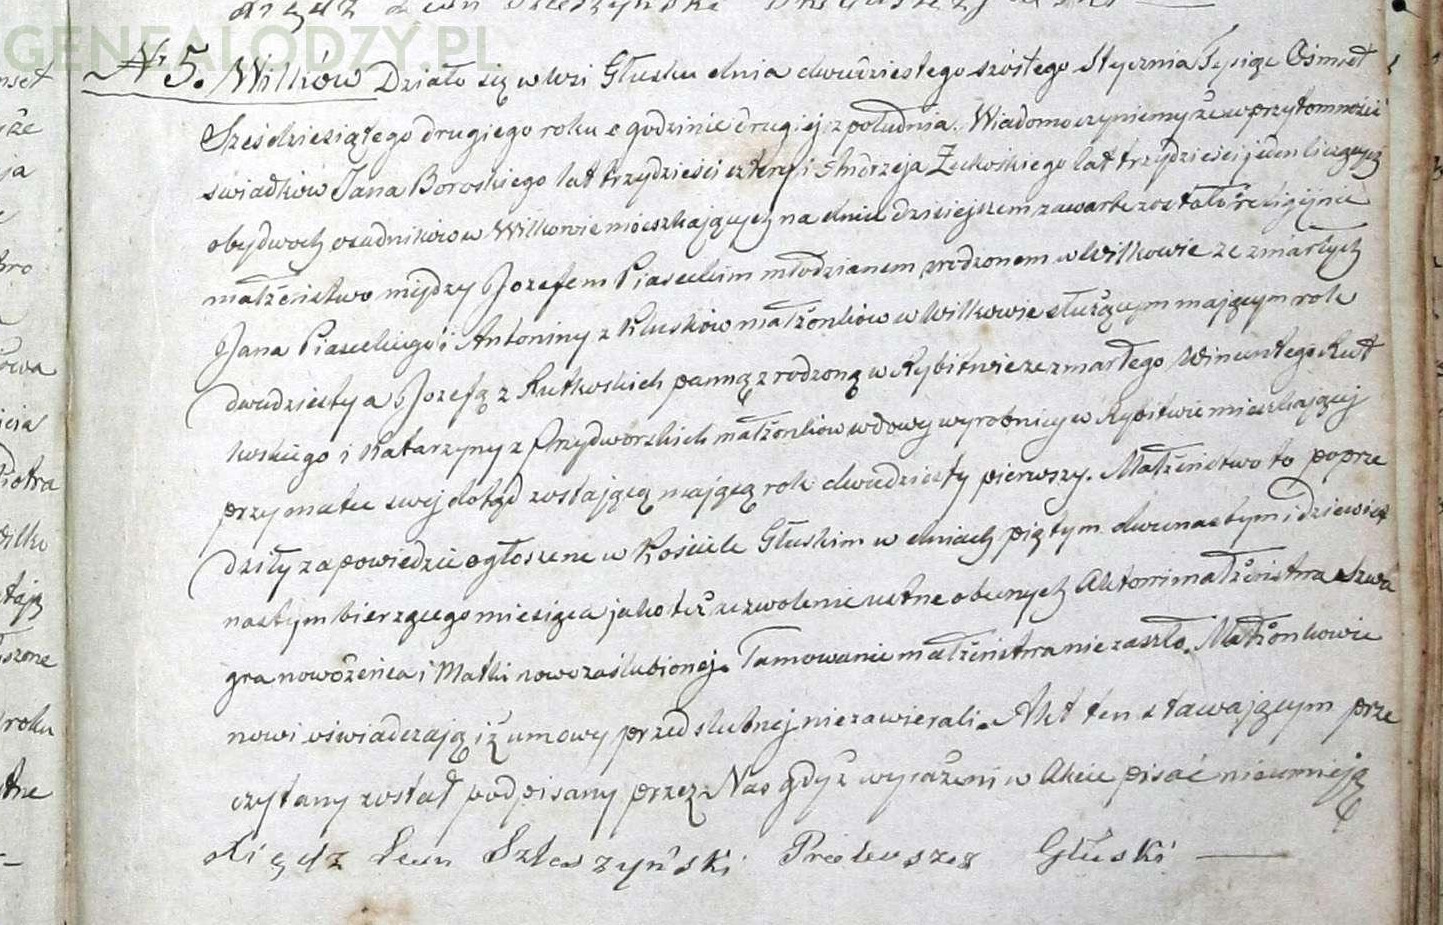 GENEALODZY.PL
№ 5. Wilków Działo się w wsi Głusku dnia dwudziestego szóstego Stycznia Tysiąc Ośmset
Sześdziesiątego drugiego roku o godzinie drugiej z południa. Wiadomo czyniemy że w przytomności
swiadków Jana Boroskiego lat trzydzieści cztery i Andrzeja Żukoskiego lat trzydzieści jeden liczących
obydwoch osadników w Wilkowie mieszkających na dniu dzisiejszem zawarte zostało religijnie
małżeństwo między Jozefem Piaseckim młodzianem zrodzonem w Wilkowie ze zmarłych
Jana Piaseckiego i Antoniny z Kłusków małżonków w Wilkowie służącym mającym rok
dwudziesty a Jozefą z Rutkoskich panną zrodzoną w Rybitwie ze zmarłego Wincentego Rut
koskiego i Katarzyny z Przydworskich małżonków wdowy wyrobnicy w Rybitwie mieszkającej
przy matce swej dotąd zostającą mającą rok dwudziesty pierwszy. Małżeństwo to poprze
dziły zapowiedzie ogłoszone w Kościele Głuskim w dniach piątym dwunastym i dziewięt
nastym bierzącego miesiąca jako też zezwolenie ustne obecnych Aktowi małżeństwa Szwa
gra nowożeńca i Matki nowozaślubionej. Tamowanie małżeństwa nie zaszło. Małżonkowie
nowi oświadczają iż umowy przedslubnej nie zawierali. Akt ten stawającym prze
czytany został podpisany przez Nas gdyż wyrażeni w Akcie pisać nieumieją
Xiądz Leon Proboszcz Głuski
roku